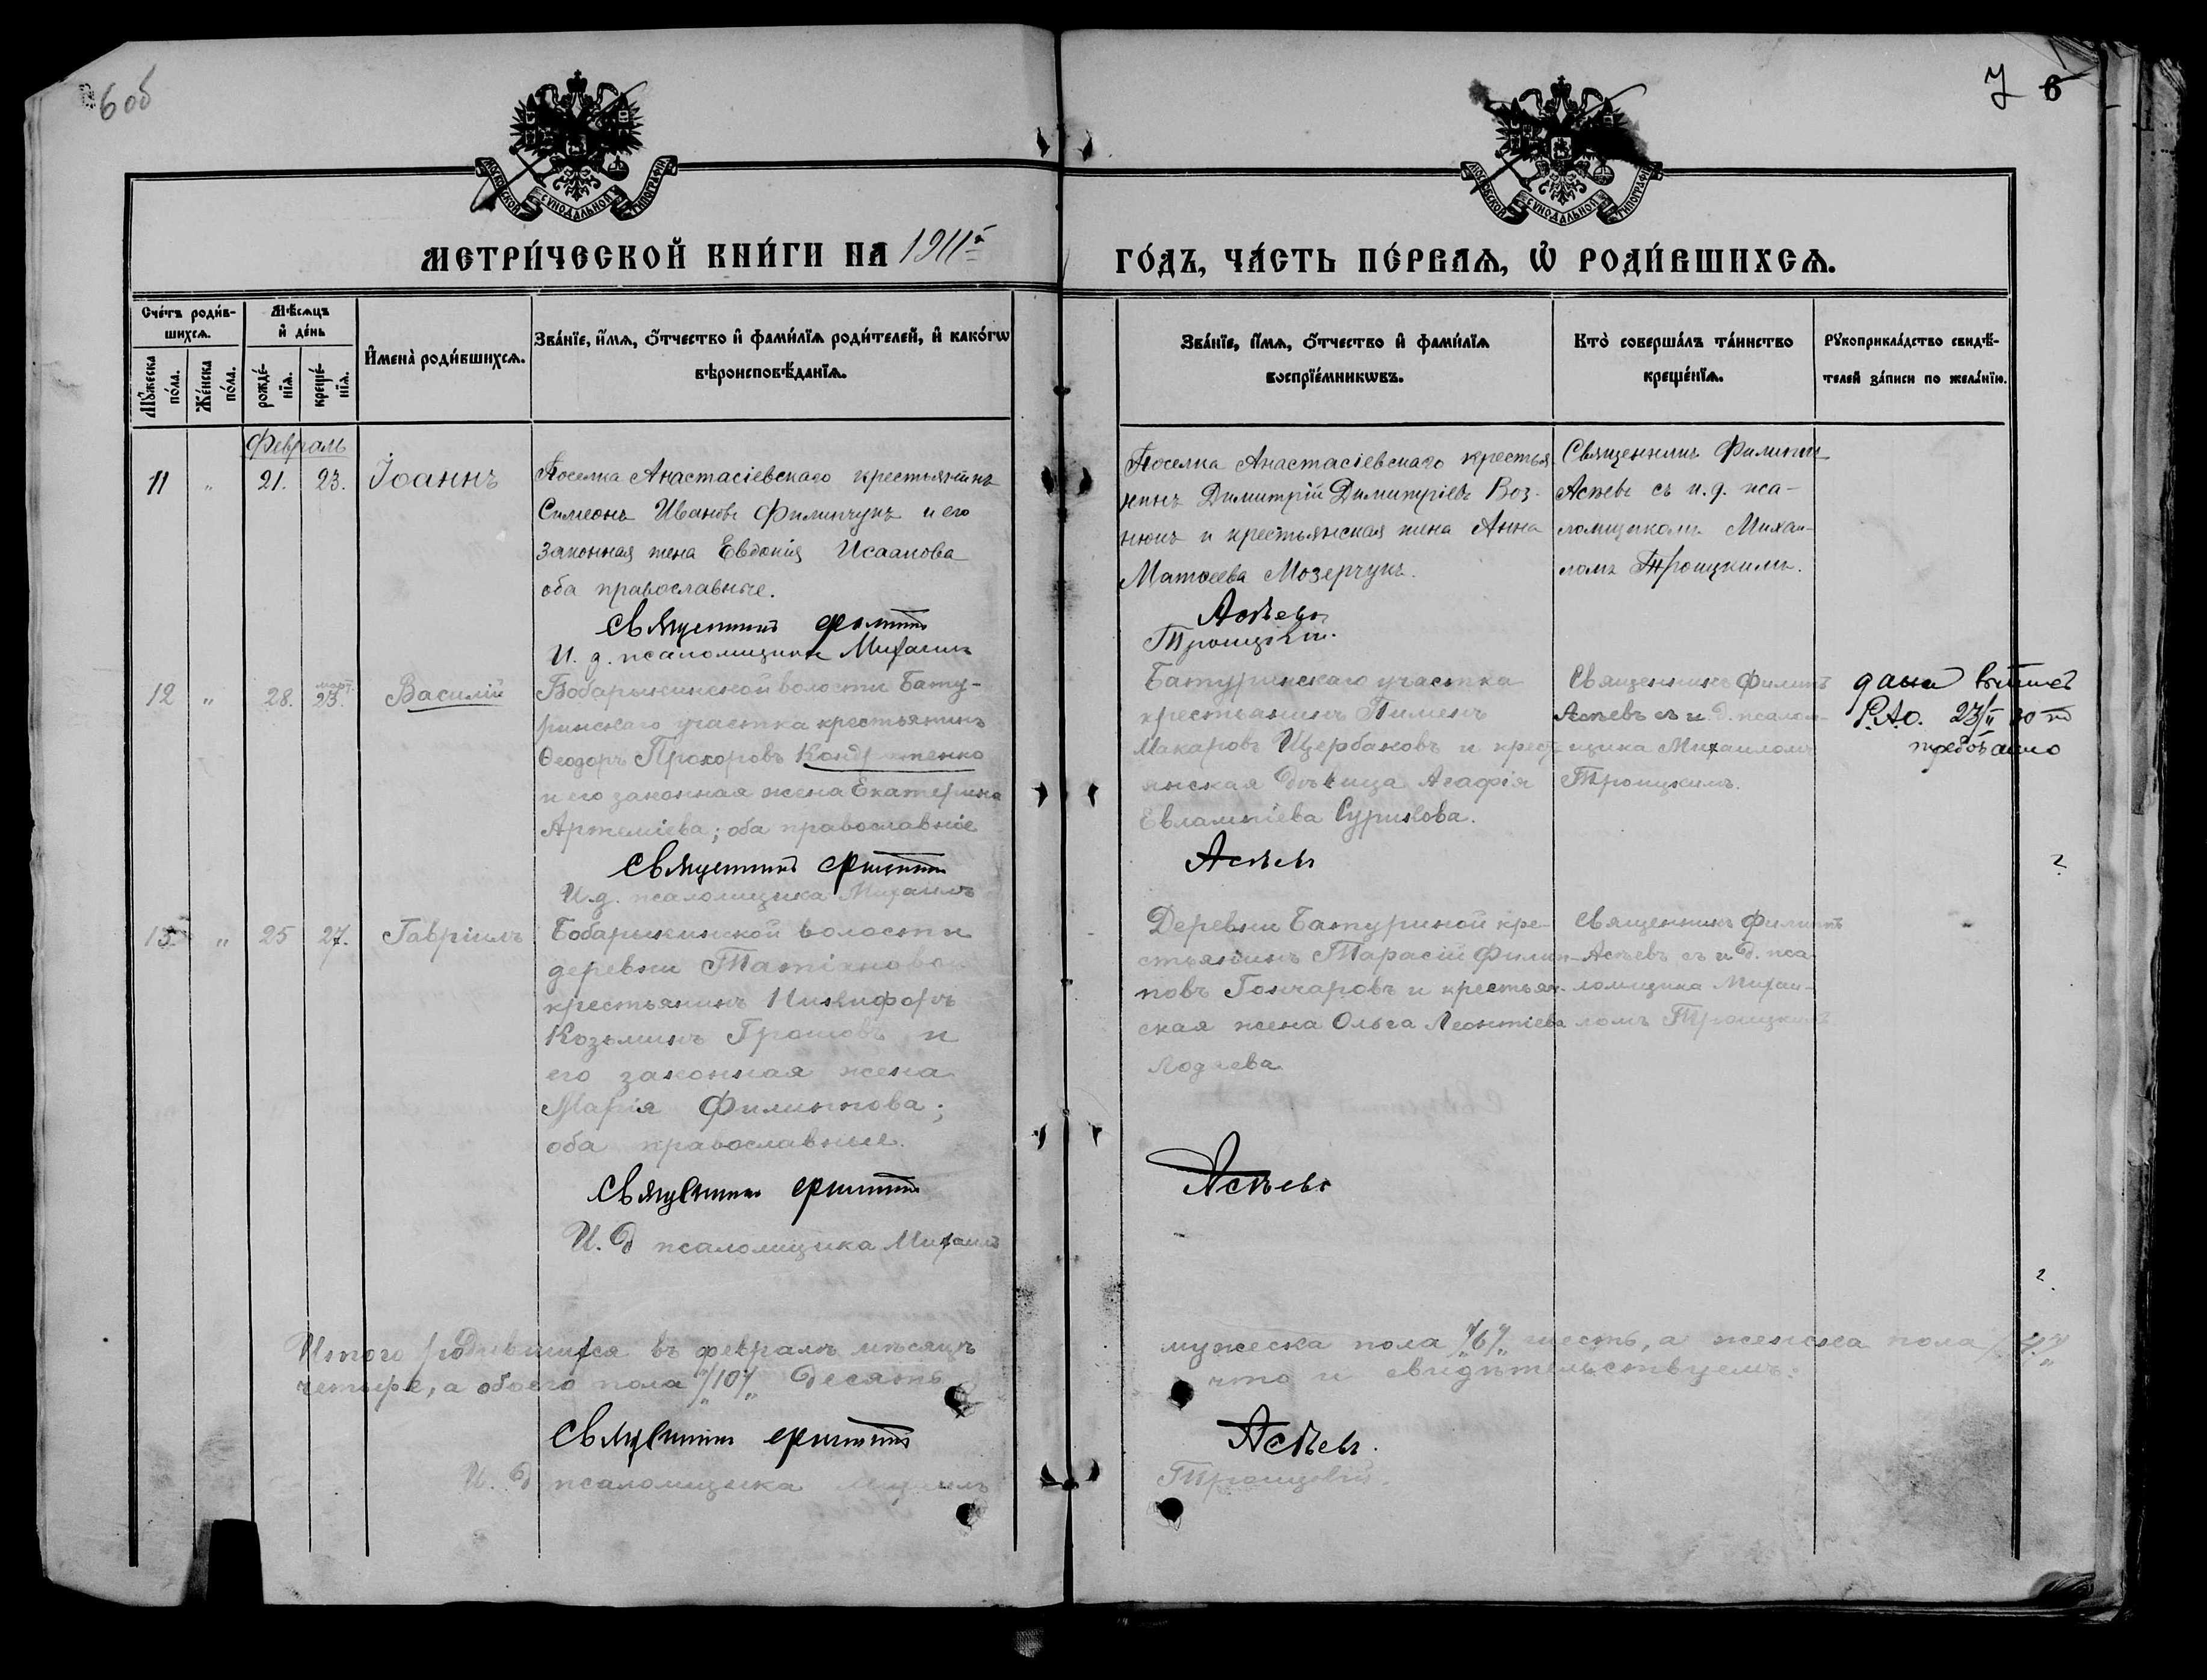 6 об
7 6
МОСКОВСКОЙ СѴНОДАЛЬНОЙ ТИПОГРАФІИ
МОСКОВСКОЙ СѴНОДАЛЬНОЙ ТИПОГРАФІИ
МЕТРИ́ЧЕСКОЙ КНИ́ГИ НА 1911й
ГО́ДЪ, ЧА́СТЬ ПЕ́РВАѦ, Ѡ҆ РОДИ́ВШИХСѦ.
Сче́тъ роди́в-
шихсѧ.
Мѣ́сѧцъ
и҆ де́нь
Мꙋ́жеска
по́ла.
Же́нска
по́ла.
рожде́-
нїѧ.
креще́-
нїѧ.
И҆мена̀ роди́вшихсѧ.
Зва́нїе, и҆́мѧ, о҆́тчество и҆ фами́лїѧ роди́телей, и҆ како́гѡ
вѣроисповѣ́данїѧ.
Зва́нїе, и҆́мѧ, о҆́тчество и҆ фами́лїѧ
воспрїе́мникѡвъ.
Кто̀ соверша́лъ та́инство
креще́нїѧ.
Рꙋкоприкла́дство свидѣ́-
телей за́писи по жела́нїю.
Февраль
11 " 21. 23. Іоаннъ
Поселка Анастасіевскаго крестьянинъ
Симеонъ Ивановъ Филипчукъ и его
законная жена Евдокія Исаакова
оба православные.
Священникъ Филиппъ
И. д. псаломщика Михаилъ
Поселка Анастасіевскаго крестья-
нинъ Димитрій Димитріевъ Воз-
нюкъ и крестьянская жена Анна
Матѳеева Мозерчукъ.
Асѣевъ
Троицкій.
Священникъ Филиппъ
Асѣевъ съ и. д. пса-
ломщикомъ Михаи-
ломъ Троицкимъ.
12 " 28. март. 23. Василій
Бобарыкинской волости Бату-
ринскаго участка крестьянинъ
Ѳеодоръ Прохоровъ Кондратенко
и его законная жена Екатерина
Артеміева; оба православніе
Священникъ Филиппъ
И.д. псаломщика Михаилъ
Батуринскаго участка
крестьянинъ Пименъ
Макаровъ Щербаковъ и крест-
янская дѣвица Агафія
Евлампіева Сурикова.
Асѣевъ
Священникъ Филиппъ
Асѣевъ съ и. д. псалом-
щика Михаиломъ
Троицкимъ.
дана
23/II 30
13. " 25 27. Гавріилъ
Бобарыкинской волости
деревни Татіановой
крестьянинъ Никифоръ
Козьминъ Грошовъ и
его законная жена
Марія Филиппова;
оба православные.
Священникъ Филиппъ
И. д псаломщика Михаилъ
Деревни Батуриной кре-
стьянинъ Тарасій Филип-
повъ Гончаровъ и крестьян-
ская жена Ольга Леонтіева
Асѣевъ
Священникъ Филиппъ
Асѣевъ съ и д. пса
ломщика Михаи-
ломъ Троицкимъ
Итого родившихся въ февралѣ мѣсяцѣ
мужеска пола "/6/" шесть, а женска пола /4/"
четыре, а обоего пола "/10/" десять
что и свидѣтельствуемъ:
Священникъ Филиппъ
Асѣевъ.
И. д псаломщика Михаилъ
Троицкій.